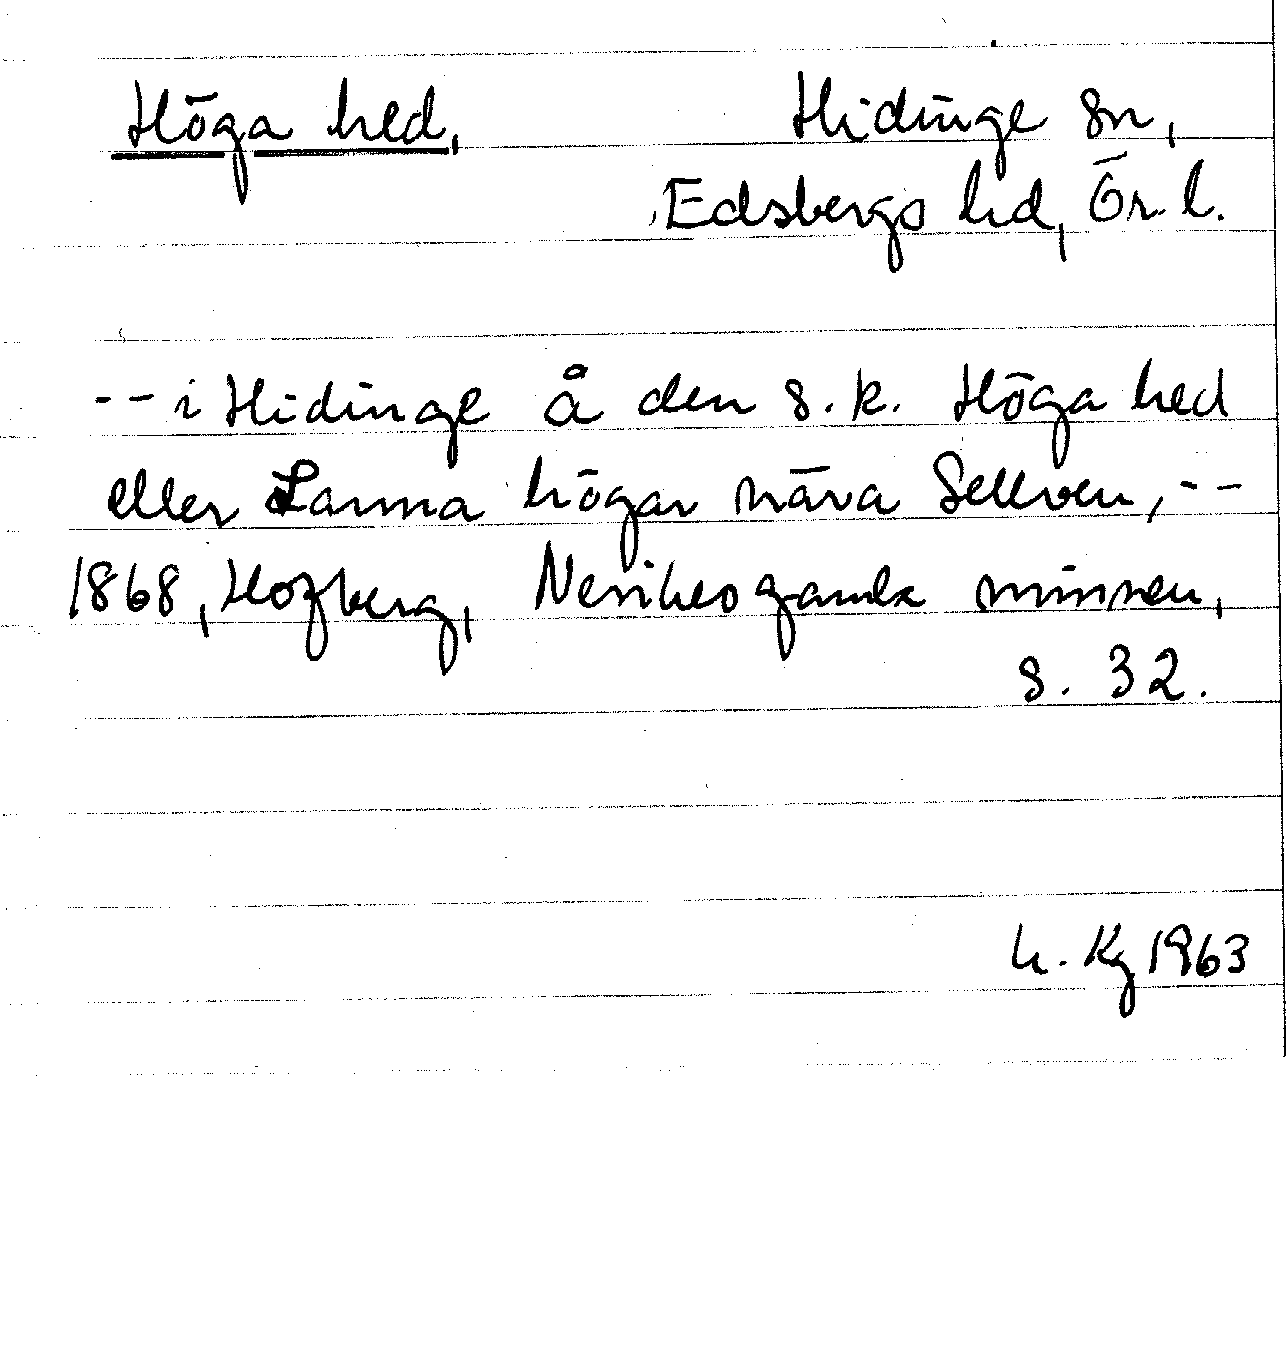 Höga hed, Hidinge sn,
Edsbergs hd, Ör. l.
-- i Hidinge å den s.k. Höga hed
eller Lanna högar nära Sellven, --
1868, Hofberg, Nerikes gamla minnen,
s. 32.
Kg 1963